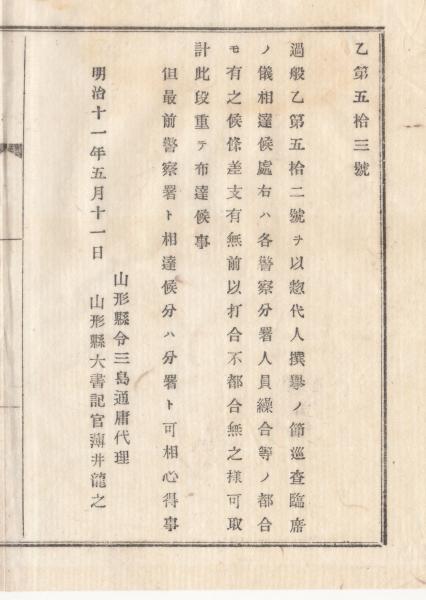 乙第五拾三號
過般乙第五拾二號ヲ以惣代人撰擧ノ節巡査臨席
ノ儀相達候處右ハ各警察分署人員繰合等ノ都合
モ有之候條差支有無前以打合不都合無之樣可取
計此段重テ布達候事
但最前警察署ト相達候分ハ分署ト可相心得事
明治十一年五月十一日
山形縣令三島通庸代理
山形縣大書記官薄井龍之